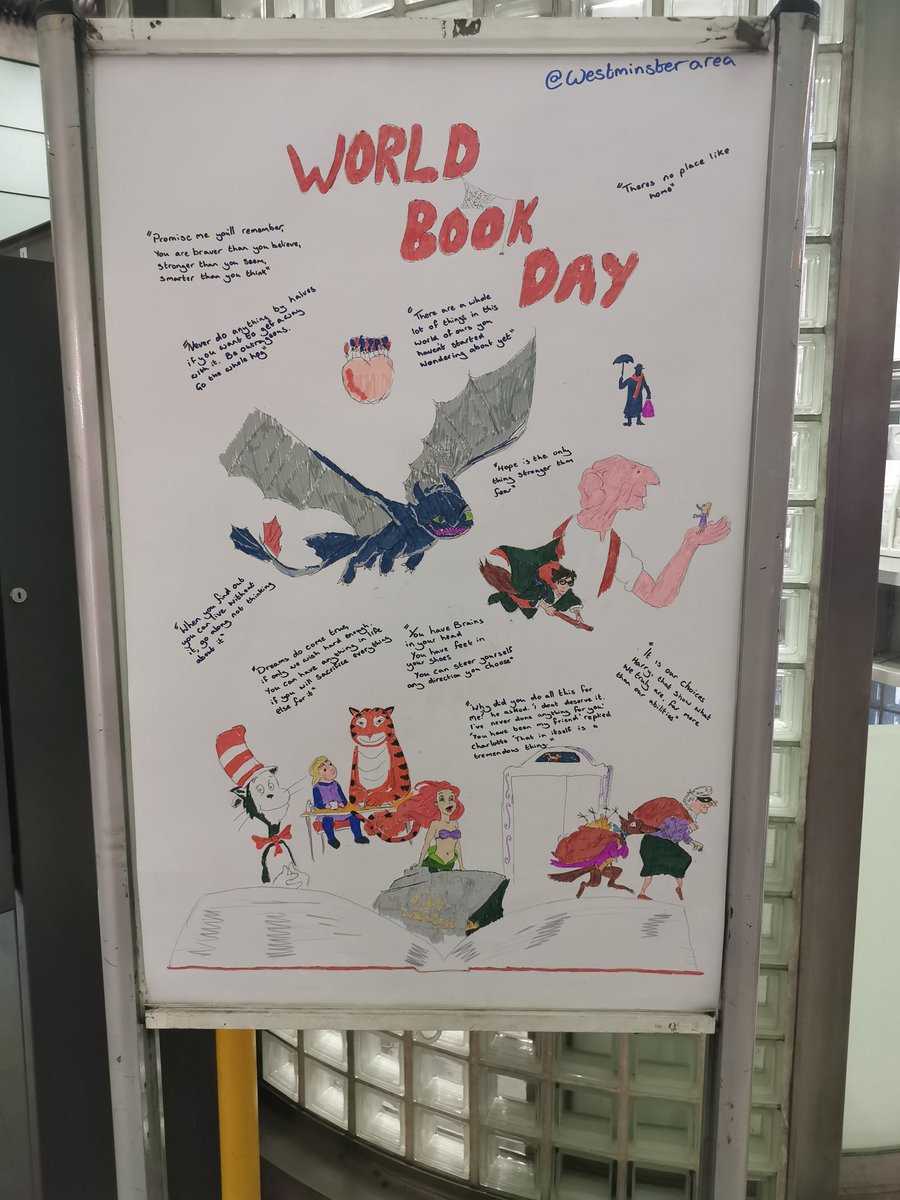 @Westminster area
WORLD
BOOK
DAY
"Theres no place like
home"
"Promise me you'll remember,
You are braver than you believe,
stronger than you seem,
smarter than you think"
"Never do anything by halves
if you want to get away
with it. Be outrageous.
Go the whole hog"
"There are a whole
lot of things in this
world of ours you
havent started
wondering about yet"
"Hope is the only
thing stronger than
fear"
"When you find out
you can live without
it, go along not thinking
about it"
"Dreams do come true,
if only we wish hard enough.
You can have anything in life
if you will sacrifice everything
else for it"
"You have Brains
in your head
You have feet in
your shoes
You can steer yourself
any direction you choose"
"It is our choices
Harry, that show what
we truly are, far more
than our abilities"
"Why did you do all this for
me?' he asked. 'I dont deserve it.
I've never done anything for you.'
'You have been my friend' replied
Charlotte 'That in itself is a
tremendous thing"